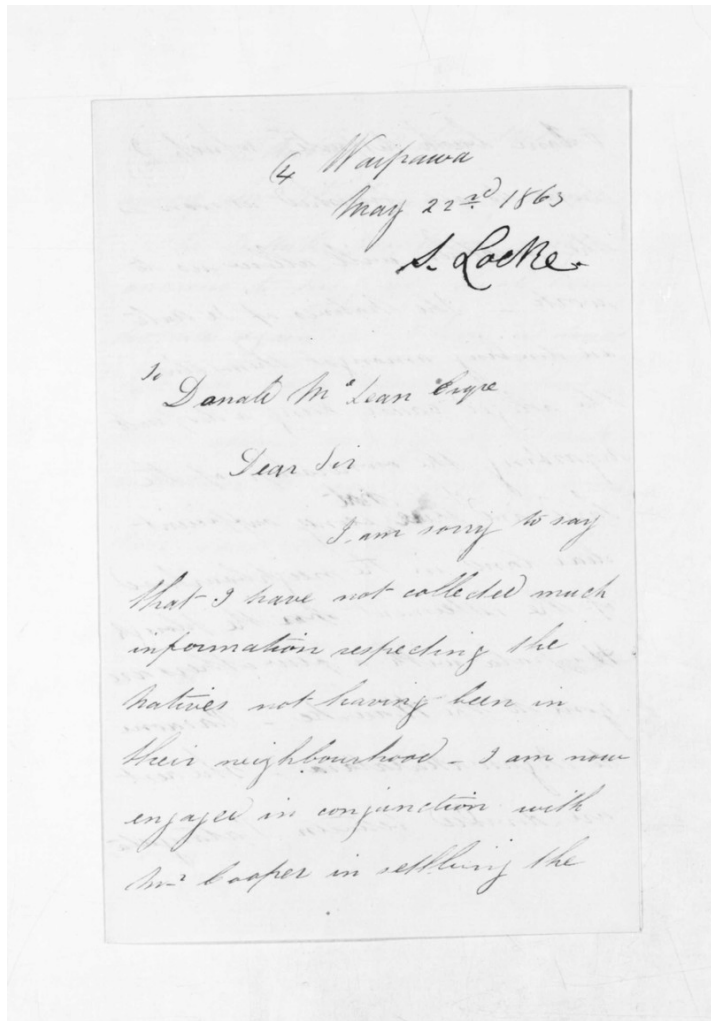 4 Waipawa
May 22nd 1863
S. Locke
To
Donald McLean Esqre
Dear Sir
I am sorry to say
that I have not collected much
information respecting the
natives not having been in
their neighbourhood - I am now
engaged in conjunction with
Mr Cooper in settling the